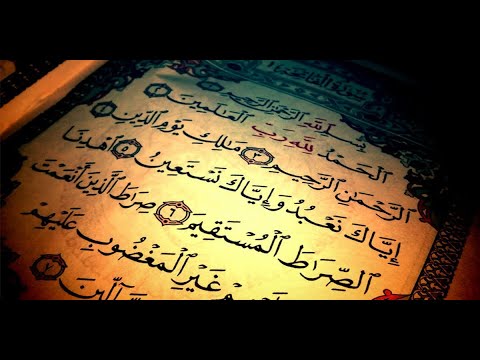 سُورَةُ الْفَاتِحَةِ
بِسْمِ ٱللَّهِ ٱلرَّحْمَٰنِ ٱلرَّحِيمِ ١
ٱلْحَمْدُ لِلَّهِ رَبِّ ٱلْعَٰلَمِينَ ٢
ٱلرَّحْمَٰنِ ٱلرَّحِيمِ ٣ مَٰلِكِ يَوْمِ ٱلدِّينِ ٤
إِيَّاكَ نَعْبُدُ وَإِيَّاكَ نَسْتَعِينُ ٥ ٱهْدِنَا
ٱلصِّرَٰطَ ٱلْمُسْتَقِيمَ ٦ صِرَٰطَ ٱلَّذِينَ أَنْعَمْتَ
غَيْرِ ٱلْمَغْضُوبِ عَلَيْهِمْ
٧